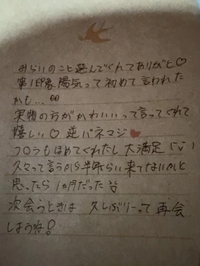 みらいのこと選んでくれてありがとう♡
第1印象 陽気って初めて言われた
かも…
実物の方がかわいいって言ってくれて
嬉しい♡ 逆パネマジ
フロうもほめてくれたし 大満足
久々って言うから半年ぐらい来てないかと
思ったら1か月だった
次会うときは 久しぶりーって 再会
しようね!